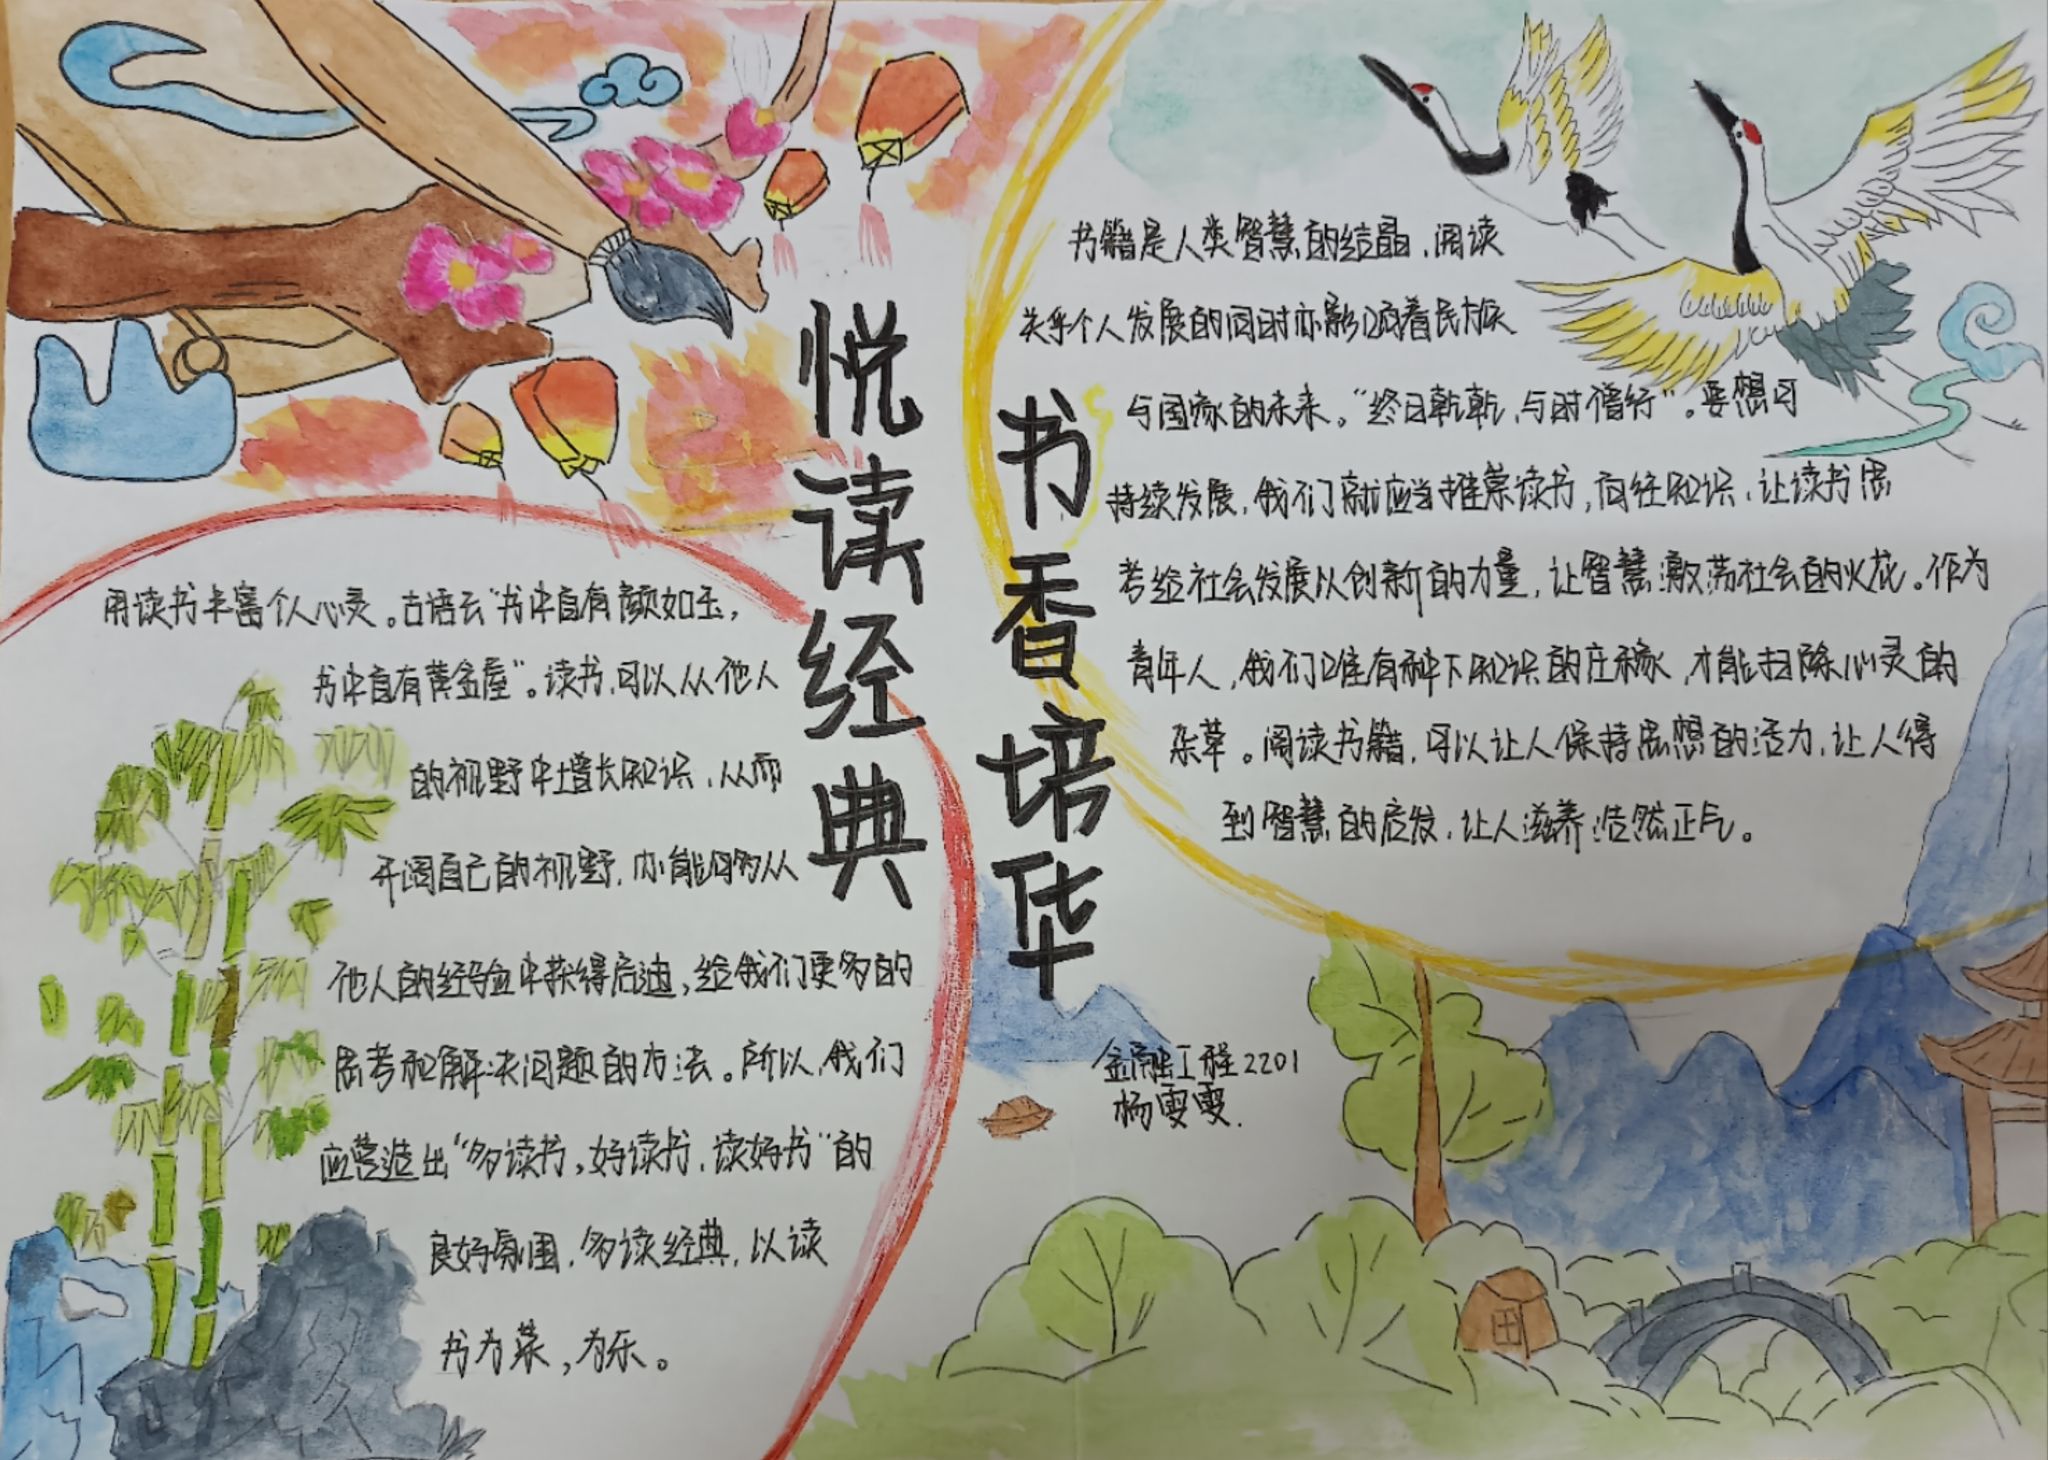 悦读经典
书香培华
用读书丰富个人心灵。古语云"书中自有颜如玉，
书中自有黄金屋"。读书，可以从他人
的视野中增长知识，从而
开阔自己的视野，亦能够从
他人的经验中获得启迪，给我们更多的
思考和解决问题的方法。所以，我们
应营造出"多读书，好读书，读好书"的
良好氛围，多读经典，以读
书为荣，为乐。
书籍是人类智慧的结晶，阅读
关乎个人发展的同时亦影响着民族
与国家的未来。"终日乾乾，与时偕行"。要想可
持续发展，我们就应当推崇读书，向往知识，让读书思
考给社会发展以创新的力量，让智慧激荡社会的火花。作为
青年人，我们唯有种下知识的庄稼，才能扫除心灵的
杂草。阅读书籍，可以让人保持思想的活力，让人得
到智慧的启发，让人滋养浩然正气。
金融工程2201
杨雯雯.